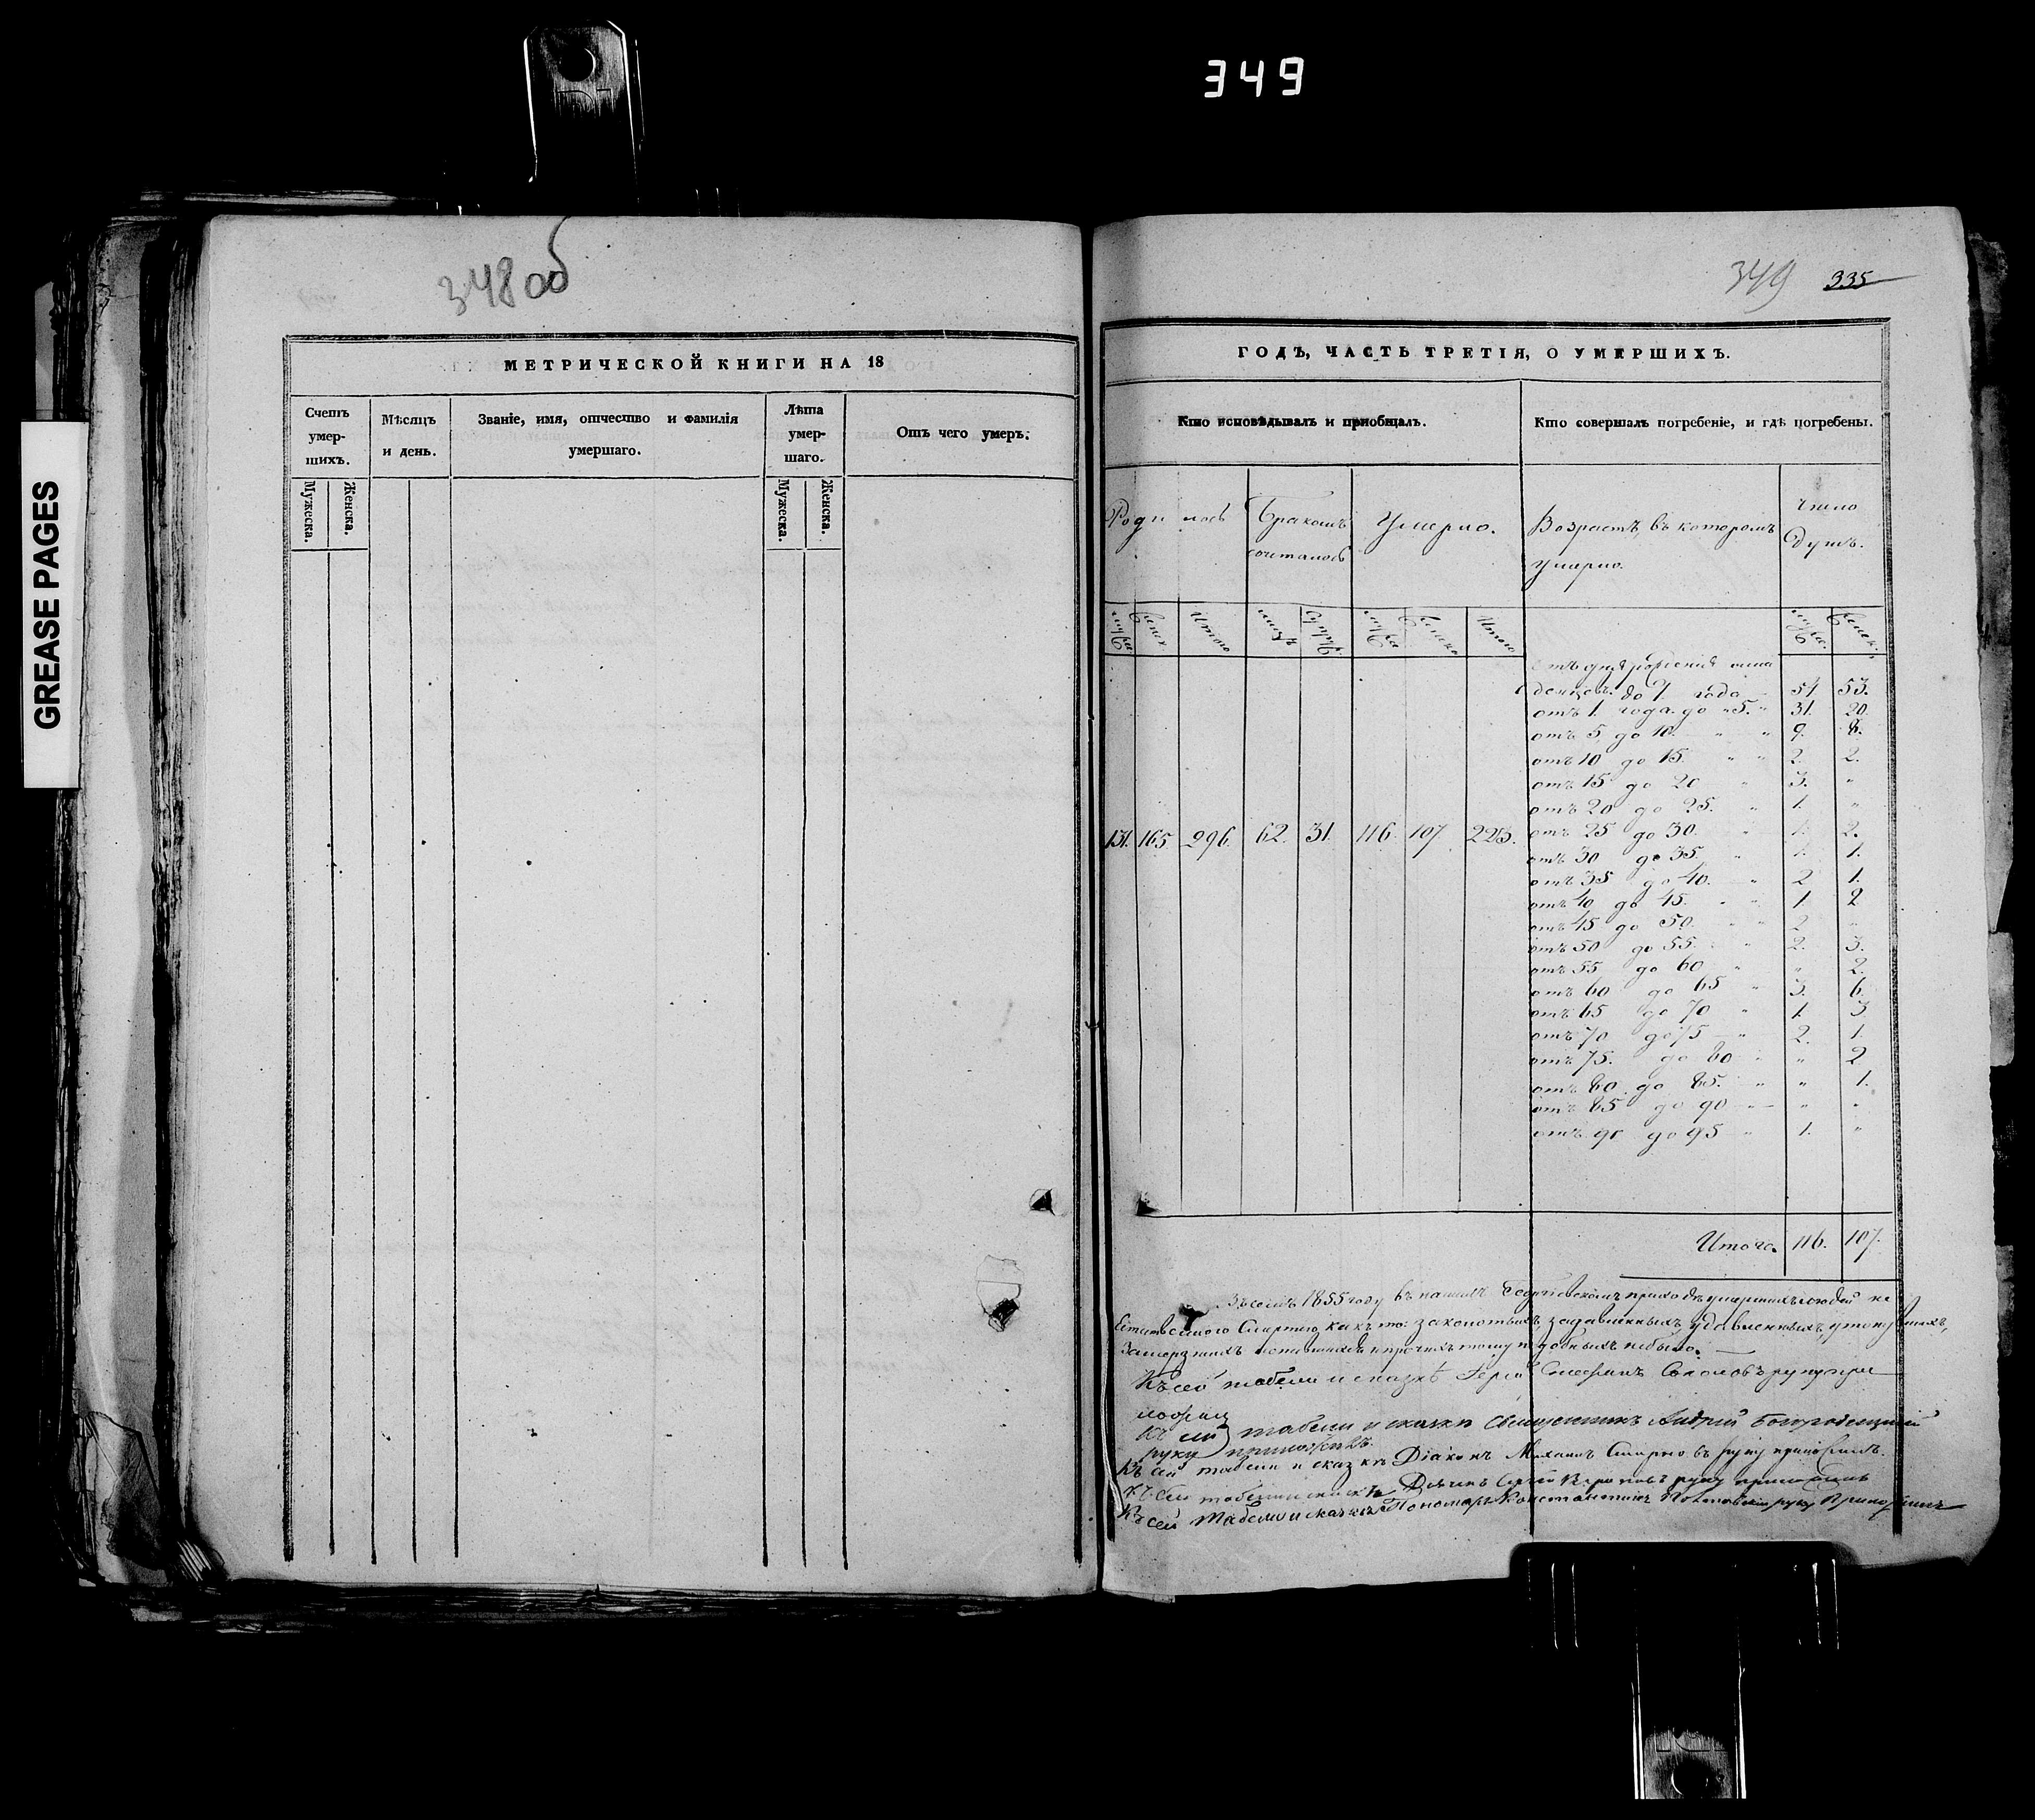 349
GREASE PAGES
348 об
МЕТРИЧЕСКОЙ КНИГИ НА 18
Счетъ умер-шихъ.
Мѣсяцъ и день.
Званіе, имя, отчество и фамилія умершаго.
Лѣта умер-шаго.
Отъ чего умеръ.
Мужеска.
Женска.
Мужеска.
Женска.
349 335
ГОДЪ, ЧАСТЬ ТРЕТІЯ, О УМЕРШИХЪ.
Кто исповѣдывалъ и пріобщалъ.
Кто совершалъ погребеніе, и гдѣ погребены.
Родилось
Бракомъ сочталось
Умерло.
Возрастъ, въ которомъ умерло.
Число Душъ.
Итого
Итого
131. 165 296. 62. 31. 116. 107. 223.
до 1. года 54 53.
отъ 1. года до 5. " 31. 20.
отъ 5 до 10. " " 9. 8.
отъ 10 до 15. " " 2. 2.
отъ 15 до 20 " 3. "
отъ 20 до 25. " 1. "
отъ 25 до 30. " 1. 2.
отъ 30 до 35. " 1. 1.
отъ 35 до 40. " 2 1.
отъ 40 до 45. " " 1. 2
отъ 45 до 50. " " 2 "
отъ 50 до 55. " 2. 3.
отъ 55 до 60 " " 2.
отъ 60 до 65 " 3. 6
отъ 65 до 70 " 1. 3
отъ 70 до 75 " 2. 1.
отъ 75. до 80 " " 2
отъ 80 до 85. " " 1.
отъ 85 до 90 " " "
отъ 90 до 95 " 1. "
Итого. 116. 107.
1855 году въ нашемъ Георгіевскомъ приходѣ умершихъ людей не
Смертію какъ то: удавленныхъ, утонувшихъ,
Замерзшихъ и прочихъ тому подобныхъ небыло.
Къ сей табели и сказкѣ Іерей Стефанъ Соколовъ руку при
ложилъ
Къ сей табели и сказкѣ Священникъ Андрей Богородицкій
руку приложилъ.
Къ сей табели и сказкѣ Діаконъ Михаилъ Смирновъ руку приложилъ.
Къ сей табели и сказкѣ Дьячекъ Сергѣй руку приложилъ
Къ сей Табели и сказкѣ Пономарь Константинъ руку Приложилъ